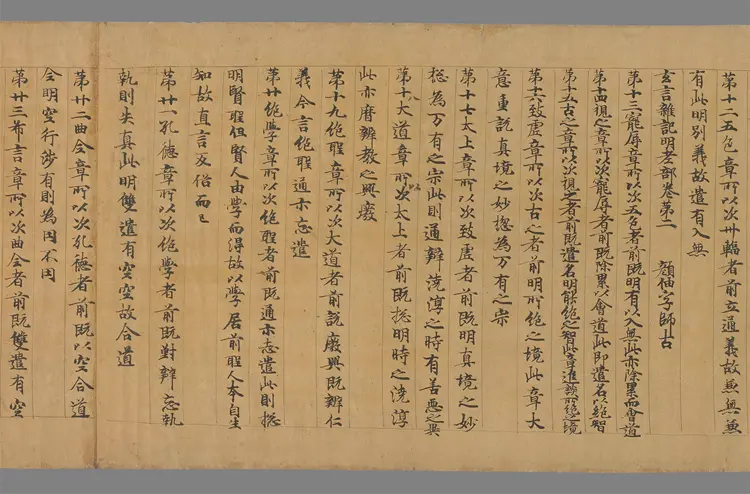 第十二五色章所以次卅輻者前立通義故無無無
有此明別義故遣有入無
玄言雜記明老部卷第二 顔字師古
第十三寵辱章所以次五色者前既明有以入無此亦除累而會道
第十四視之章所以次寵辱者前既除累以會道此即遣名以絕智
第十五古之章所以次視之者前既遣名明能絕之智此章進辯所絕之境
第十六致虛章所以次古之者前明所絕之境此章大
意重說真境之妙惣為万有之宗
第十七太上章所以次致虛者前既明真境之妙
惣為万有之宗此則通辯澆淳之時有善惡之異
第十八大道章所以次太上者前既惣明時之澆淳
此亦曆辯教之興廢
第十九絕聖章所以次大道者前說廢興既辨仁
義今言絕聖通亦忘遣
第廿絕學章所以次絕聖者前既通亦忘遣此則惣
明賢聖但賢人由學而得故以學居前聖人本自生
知故直言反俗而已
第廿一孔德章所以次絕學者前既對辯忘執
執則失真此明雙遣有空空故合道
第廿二曲全章所以次孔德者前既以空合道
今明空行涉有則為因不因
第廿三希言章所以次曲全者前既雙遣有空